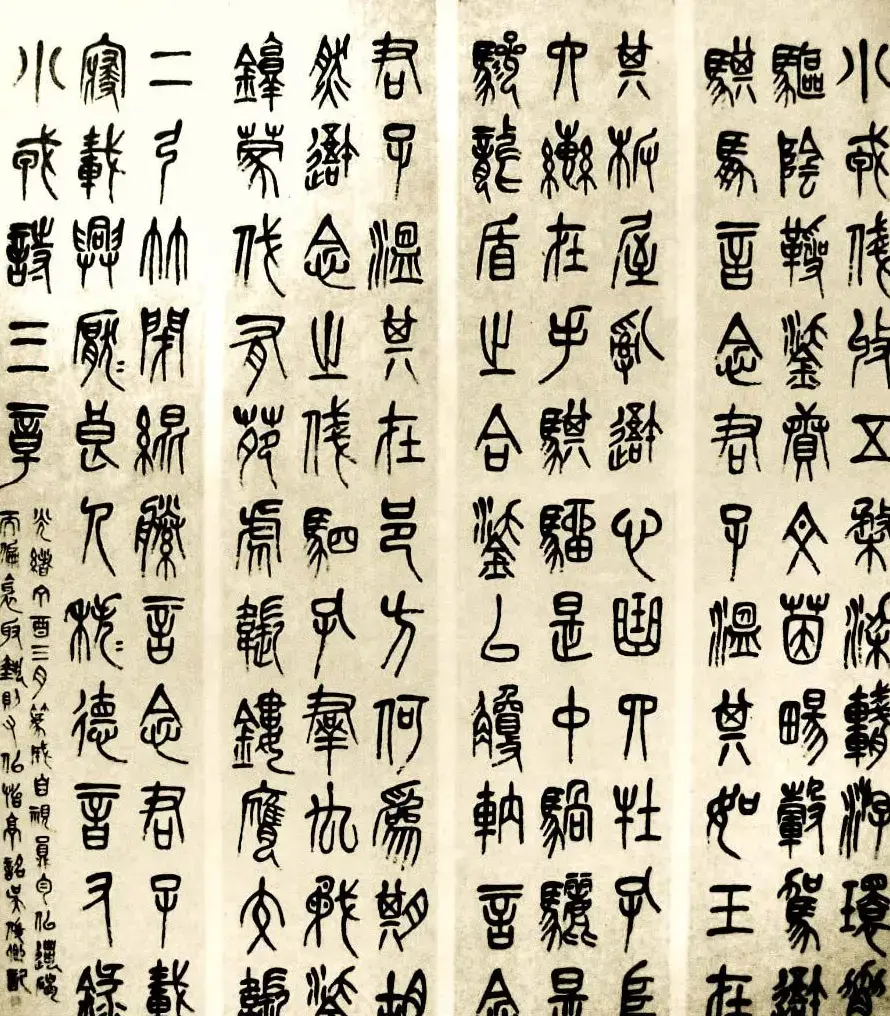 小戎俴收五楘梁輈游環脅
驅陰靷鋈續文茵暢轂駕我
騏馵言念君子溫其如玉在
其板屋亂我心曲四牡孔阜
六轡在手騏騮是中騧驪是
驂龍盾之合鋈以觼軜言念
君子溫其在邑方何為期胡
然我念之俴駟孔群厹矛鋈
錞蒙伐有苑虎韔鏤膺交韔
二弓竹閉緄縢言念君子載
寢載興厭厭良人秩秩德音又錄
小戎詩三章
光緒丁酉三月篆成自視
吳俊卿記